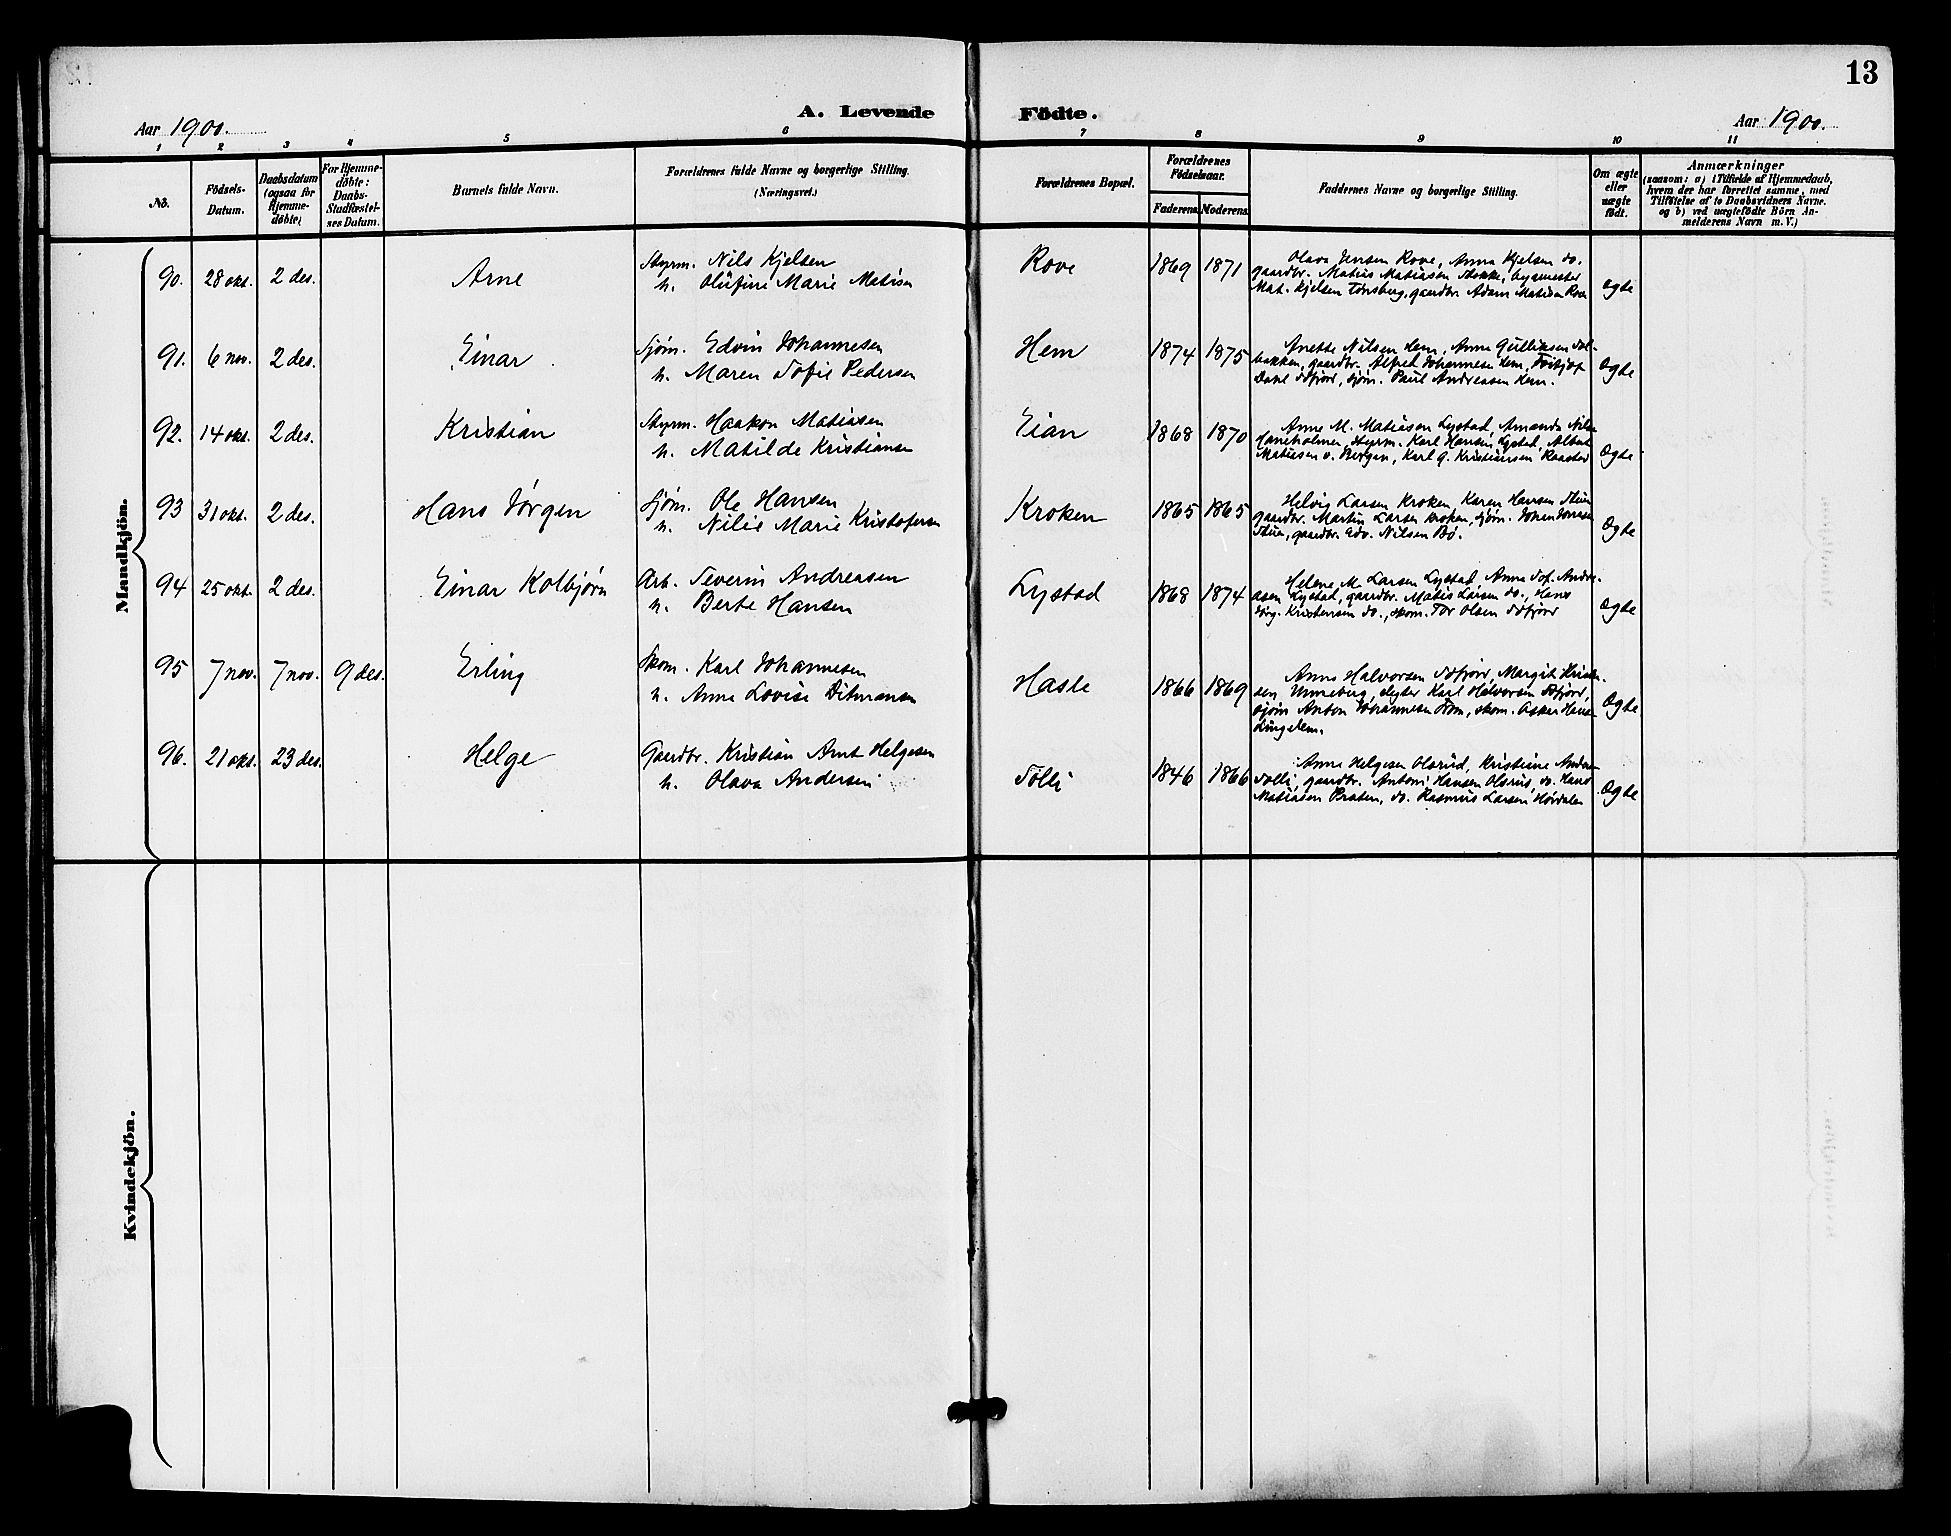 13
A. Levende Födte.
Aar 1900.
Aar 1900.
1 2 3 4 5 6 7 8 9 10 11
No.
Födsels-Datum.
Daabsdatum (ogsaa for Hjemme-döbte)
For Hjemme-döbte: Daabs-Stadfæstel-ses Datum.
Barnets fulde Navn.
Forældrenes fulde Navne og borgerlige Stilling. (Næringsvei.)
Forældrenes Bopæl.
Forældrenes Födselsaar.
Faderens. Moderens.
Faddernes Navne og borgerlige Stilling.
Om ægte eller uægte födt.
Anmærkninger
(saasom: a) i Tilfælde af Hjemmedaab,
hvem der har forrettet samme, med
Tilföielse af to Daabsvidners Navne.
og b) ved uægtefödte Börn An-
melderens Navn m. V.)
Mandkjön.
90. 28 okt. 2 des. Arne
Styrm. Nils Kjelsen
h. Olufine Marie Matisen
Rove 1869 1871
Olava Jensen Rove, Anna Kjelsen do.
gaardbr. Matius Matiasen Stokke, bygmester
Mat. Kjelsen Tönsberg, gaardbr. Adam Matisen Rove
Ægte
91. 6 nov. 2 des. Einar
Sjøm. Edvin Johannesen
h. Maren Sofie Pedersen
Hem 1874 1875
Anette Nilsen Hem, Anna Gulliksen Sol-
bakken, gaardbr. Alfred Johannesen Hem, Fritjof
Dahl Sdfjord, sjøm. Paul Andreasen Hem.
Ægte
92. 14 okt. 2 des. Kristian
Styrm. Haakon Matiasen
h. Matilde Kristiansen
Eian 1868 1870
Anne M. Matiasen Lystad, Amanda
styrm. Karl Hansen Lystad, Albert
Matiasen v. Bergan, Karl G. Kristiansen Raastad
Ægte
93 31 okt. 2 des. Hans Jørgen
Sjøm. Ole Hansen
h. Nilie Marie Kristofersen
Kroken 1865 1865
Helvig Larsen Kroken, Karen Hansen
gaardbr. Martin Larsen Kroken, sjøm. Johan
gaardbr. Edv. Nilsen Bø.
Ægte
94 25 okt. 2 des. Einar Kolbjørn
Arb. Severin Andreasen
h. Berte Hansen
Lystad 1868 1874
Helene M. Larsen Lystad, Anna Sof. Andre-
asen Lystad, gaardbr. Matis Larsen do., Hans
Jørg. Kristensen do., skom. Tor Olsen Sdfjord
Ægte
95 7 nov. 7 nov. 9 des. Erling
Skom. Karl Johannesen
h. Anna Lovise Ditmansen
Hasle 1866 1869
Anna Halvorsen Sdfjord, Margit
sen Unneberg, slagter Karl Halvorsen Sdfjord,
sjøm Anton Johannesen skom. Asker Hansen
Lingelem.
Ægte
96. 21 okt. 23 des. Helge
Gaardbr. Kristian Arnt Helgesen
h. Olava Andersen
Tolli 1846 1866
Anne Helgesen Olsrud, Kristine Andersen
Tolli, gaardbr. Anton Hansen Olsrud, do. Hans
Matiasen Praten, do. Rasmus Larsen Hørdalen
Ægte
Kvindekjön.